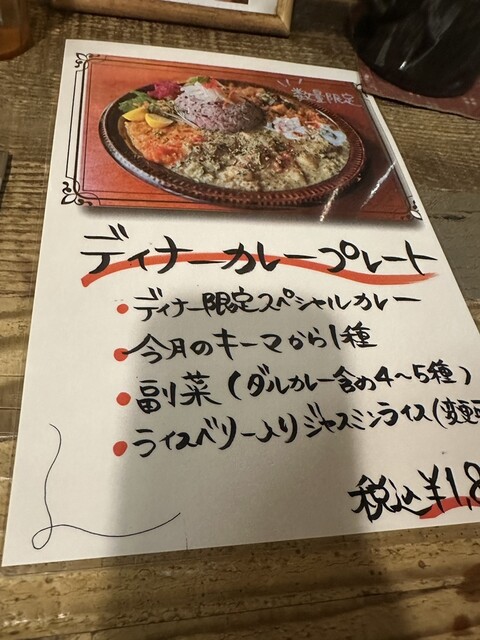 数量限定
ディナーカレープレート
・ディナー限定スペシャルカレー
・今月のキーマから1種
・副菜(ダルカレー含め4〜5種)
・ライスベリー入りジャスミンライス(変更
税込¥1,8